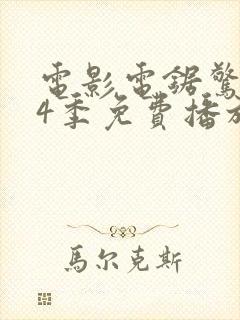 電影電鋸驚
4季免費播放
馬尔克斯